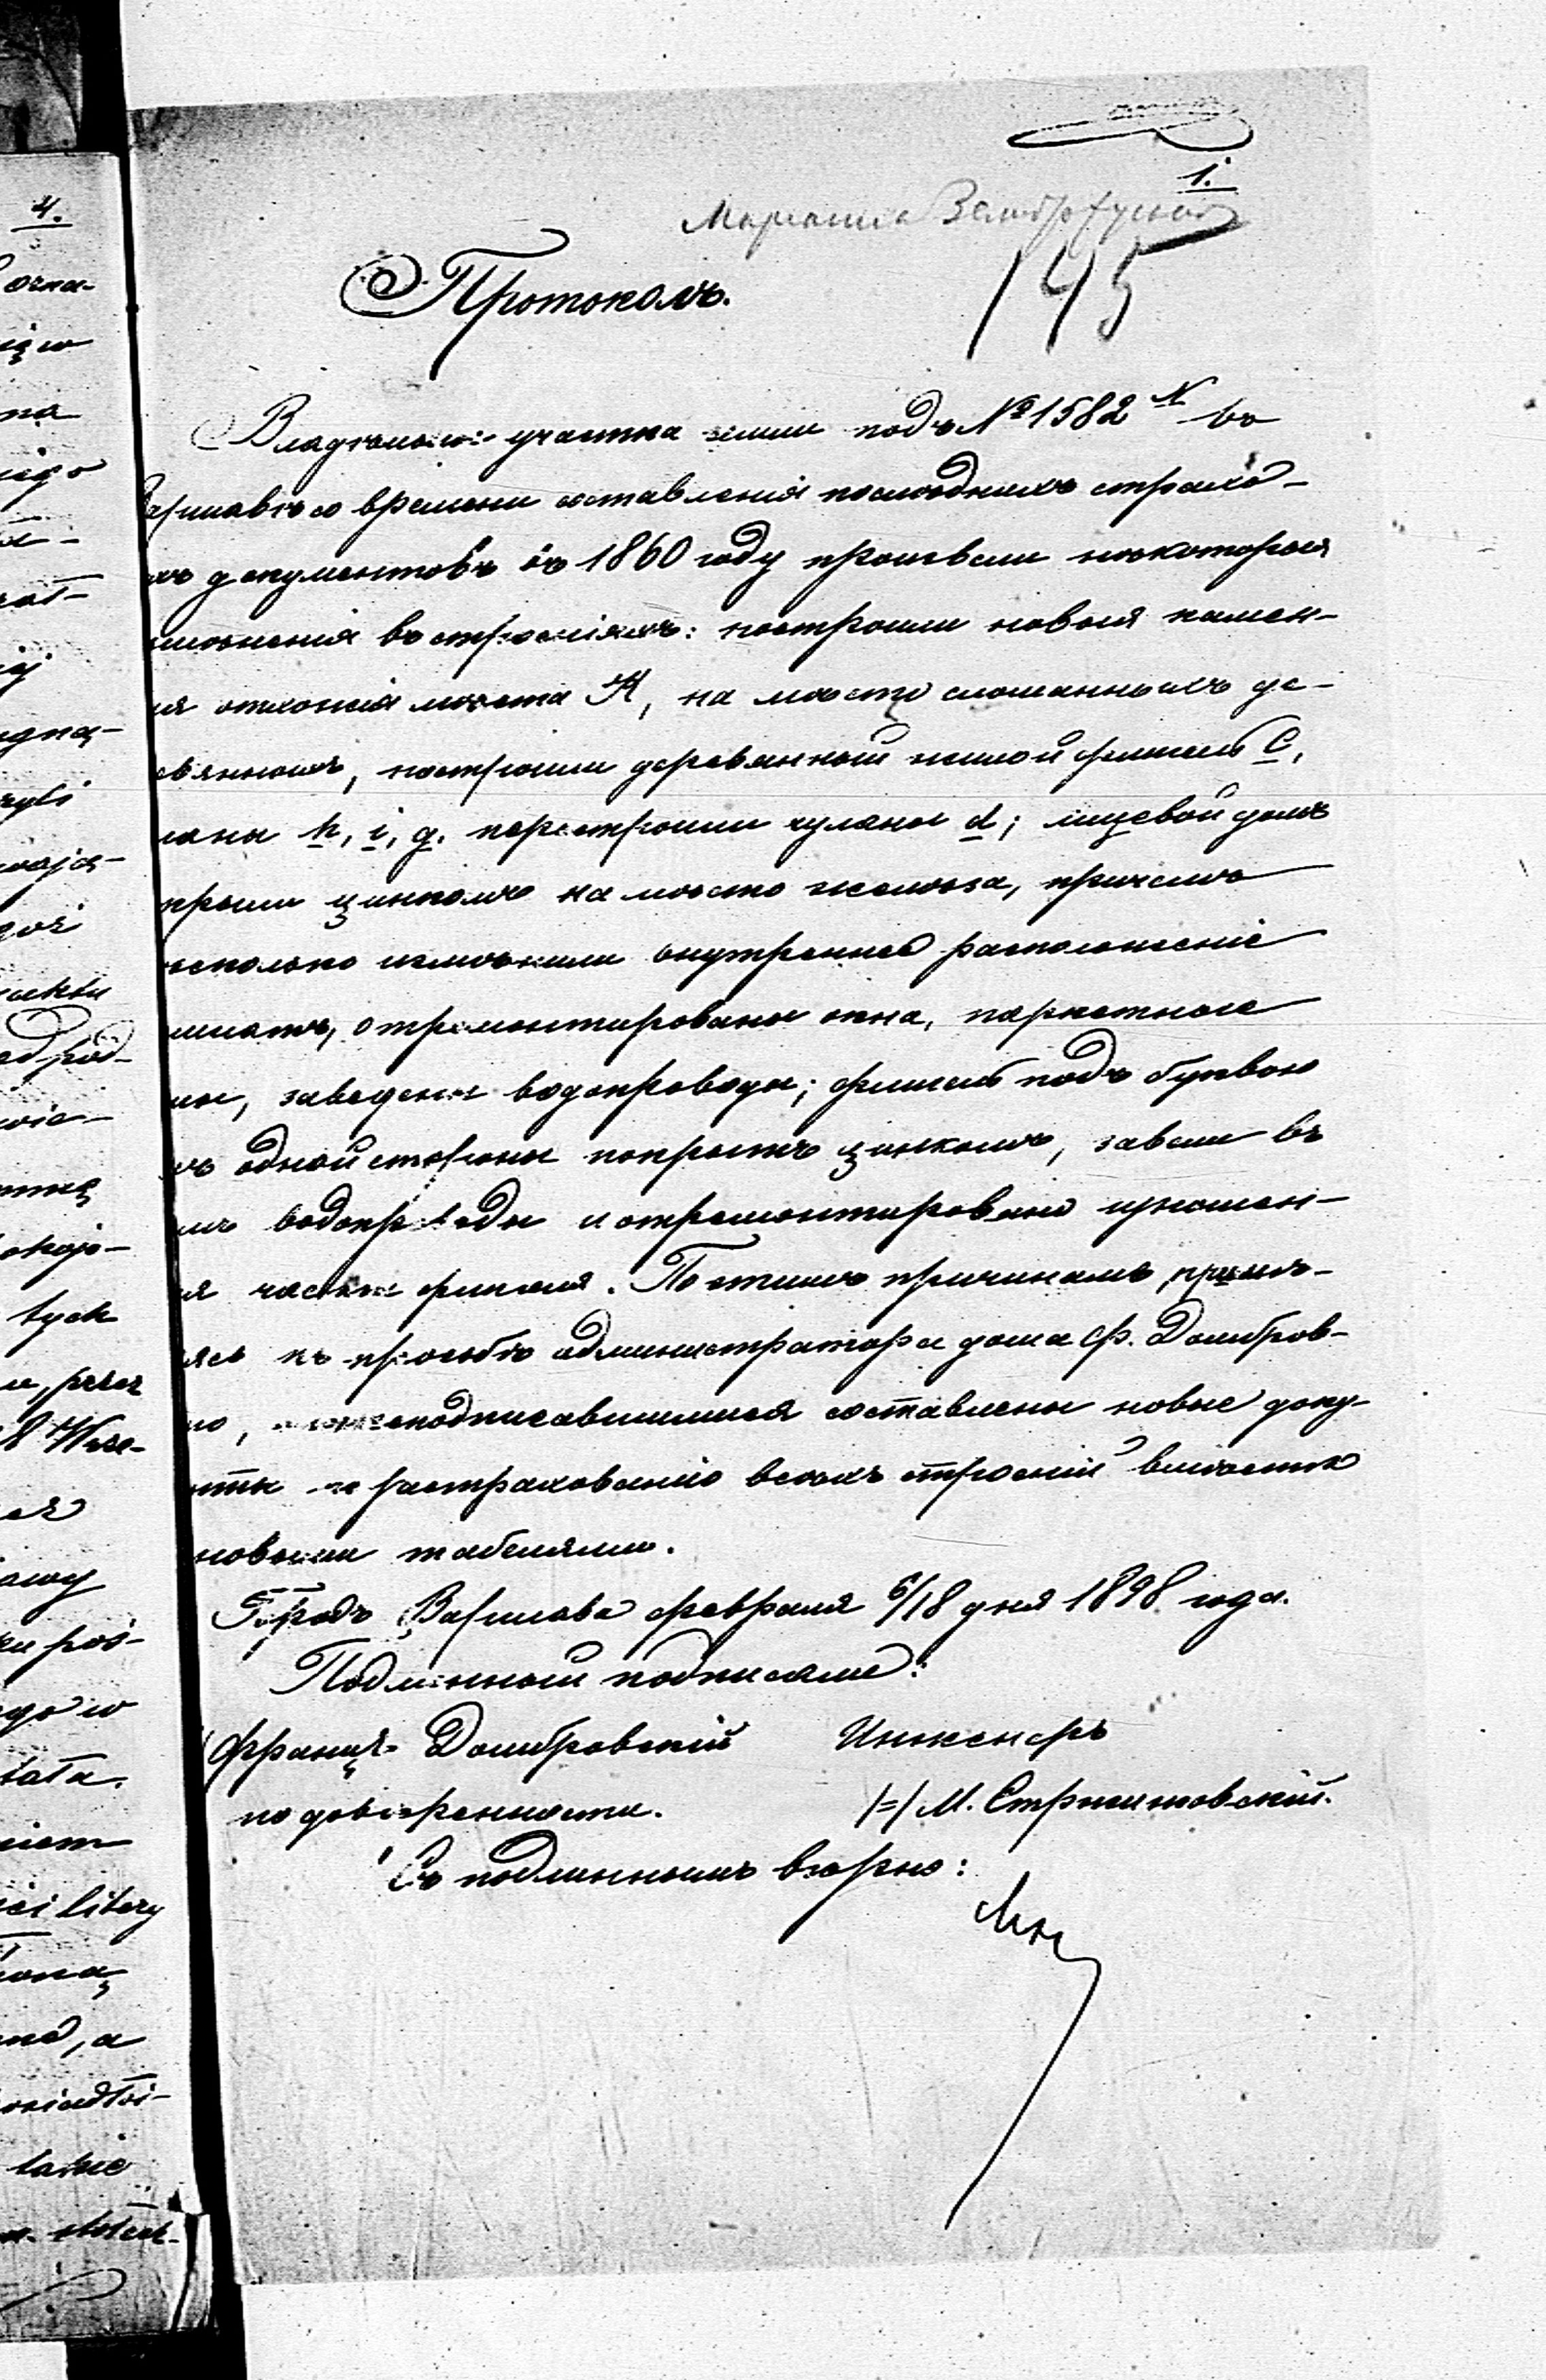 1.
Марианна
145
Протоколъ.
Владѣльцы участка земли подъ № 1582 N въ
Варшавѣ со времени составленія послѣднихъ страхо-
хъ документовъ въ 1860 году произвели нѣкоторыя
измѣненія въ строеніяхъ: построили новыя камен-
ыя отхожія мѣста К, на мѣсто сломанныхъ де-
евянныхъ, построили деревянный жилой флигель С,
ланы h, i, g. перестроили чуланы d; лицевой домъ
крыли цинкомъ на мѣсто желѣза, причемъ
нѣсколько измѣнили внутреннее расположеніе
мнатъ, отремонтированы окна, паркетные
лы, заведены водопроводы; флигель подъ буквою
съ одной стороны покрытъ цинкомъ, завели въ
мъ водопроводы и отремонтировано изношен-
ыя части флигеля. По этимъ причинамъ,
ясь къ просьбѣ администратора дома Ф. Домбров-
го, нижеподписавшимися составлены новые доку-
нты по застрахованію всѣхъ строеній вмѣстѣ
новыми табелями.
Городъ Варшава февраля 6/18 дня 1898 года.
Подлинный подписали:
Францъ Домбровскій Инженеръ
по довѣренности. /=/ М. Стржижовскій.
Съ подлиннымъ вѣрно:
4.
na
ięgo
tych
u, przez
iata.
ści litery
takie